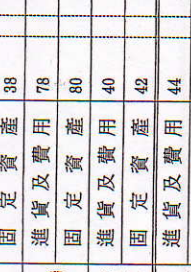 固定資產 38
進貨及費用 78
固定資產 80
進貨及費用 40
固定資產 42
進貨及費用 44